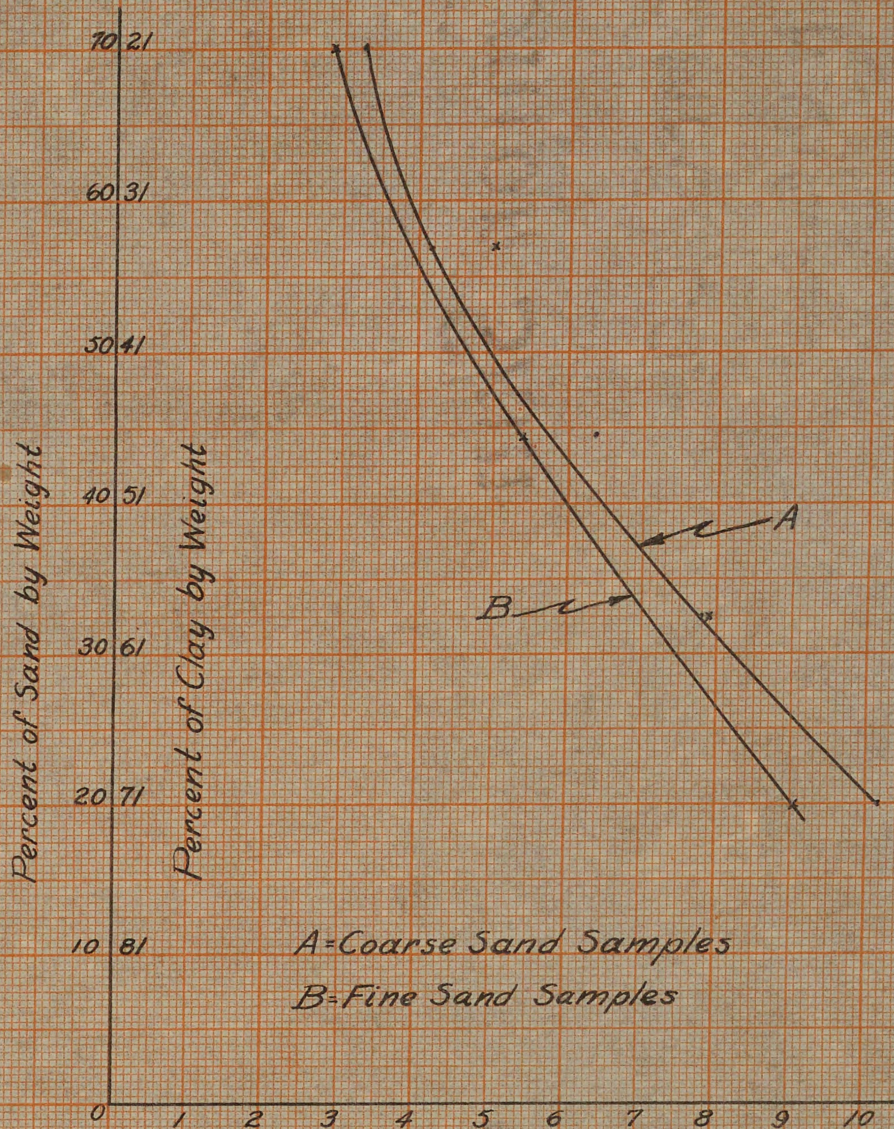 70 21
60 31
50 41
40 51
30 61
20 71
10 81
0 1 2 3 4 5 6 7 8 9 10
Percent of Sand by Weight
Percent of Clay by Weight
A
B
A=Coarse Sand Samples
B=Fine Sand Samples